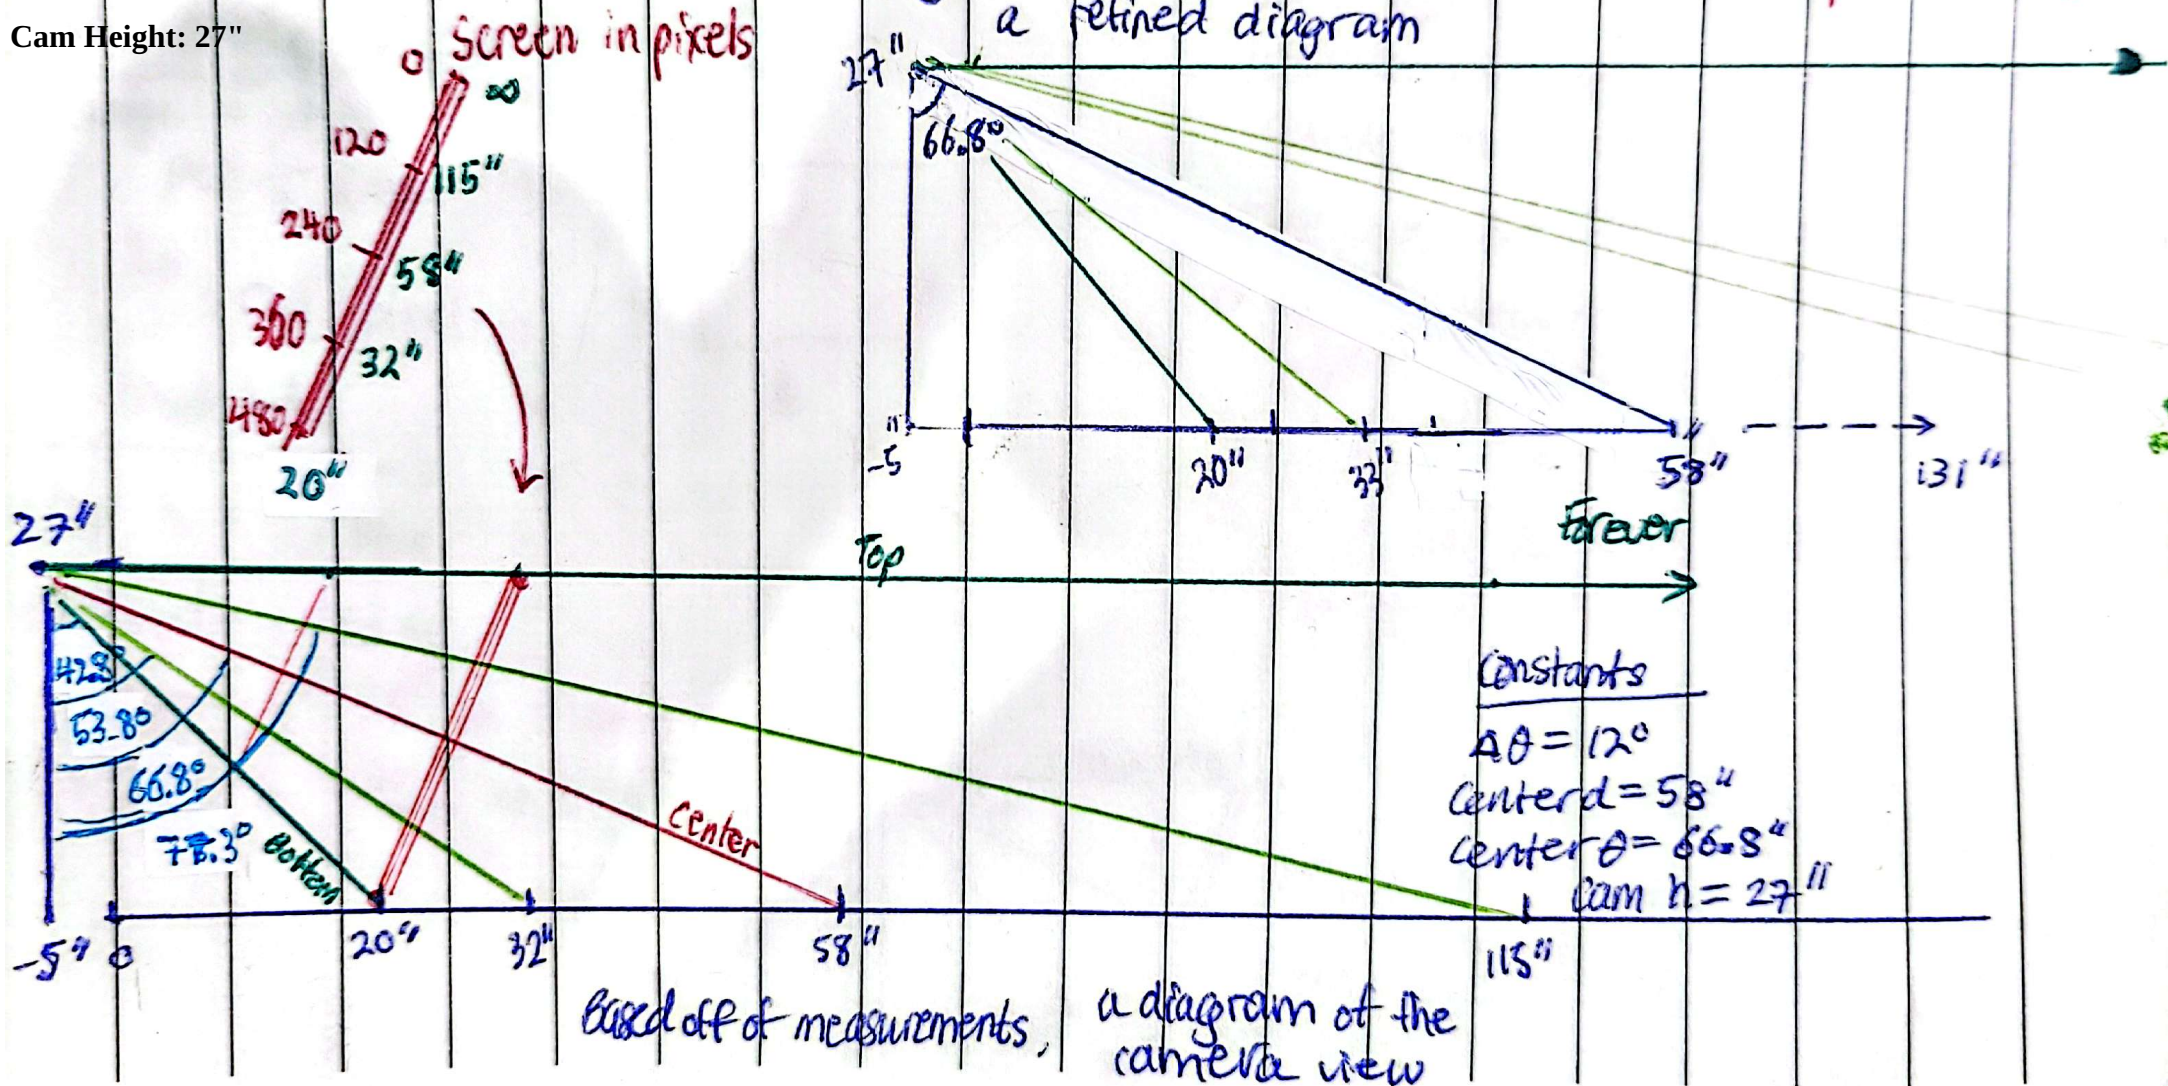 Cam Height: 27"
Screen in pixels
0 ∞
120 115"
240 58"
360 32"
480 20"
a refined diagram
27"
66.8°
-5" 20" 33" 58" 131"
Forever
27"
Top
42.8°
53.8°
66.8°
78.3°
Bottom
Center
-5" 0 20" 32" 58" 115"
Constants
Δθ = 12°
Center d = 58"
Center θ = 66.8"
Cam h = 27"
Based off of measurements, a diagram of the
camera view